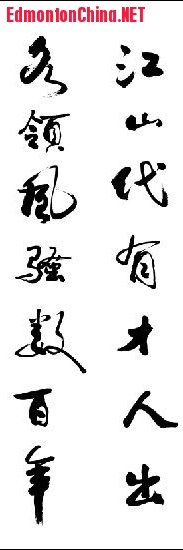 EdmontonChina.NET
江山代有才人出
各領風騷數百年